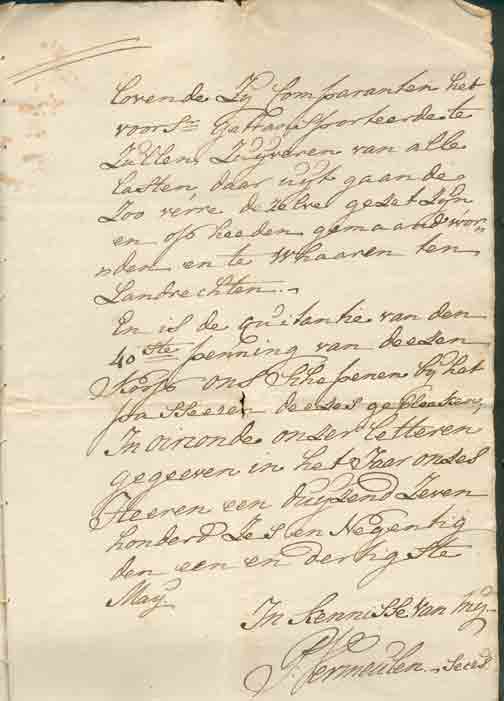 Lovende Zy Comparanten het
voors: Getransporteerde te
Zullen Zuyveren van alle
lasten daar uyt gaande
Zoo vérre dezelve gezet Zyn
en op heeden gemaand wor-
nden en te Whaaren ten
Landrechten.-
En is de quitantie van den
40ste penning van deezen
Koop ons Schepenen by het
passeeren deezes gebleeken,
In oirconde onzer Letteren
gegeeven in het Jaar onzes
Heeren een duyzend Zeven
honderd Zes en Negentig
den een en dertigste
May.
In kennisse van my
Vermeulen - Secrs